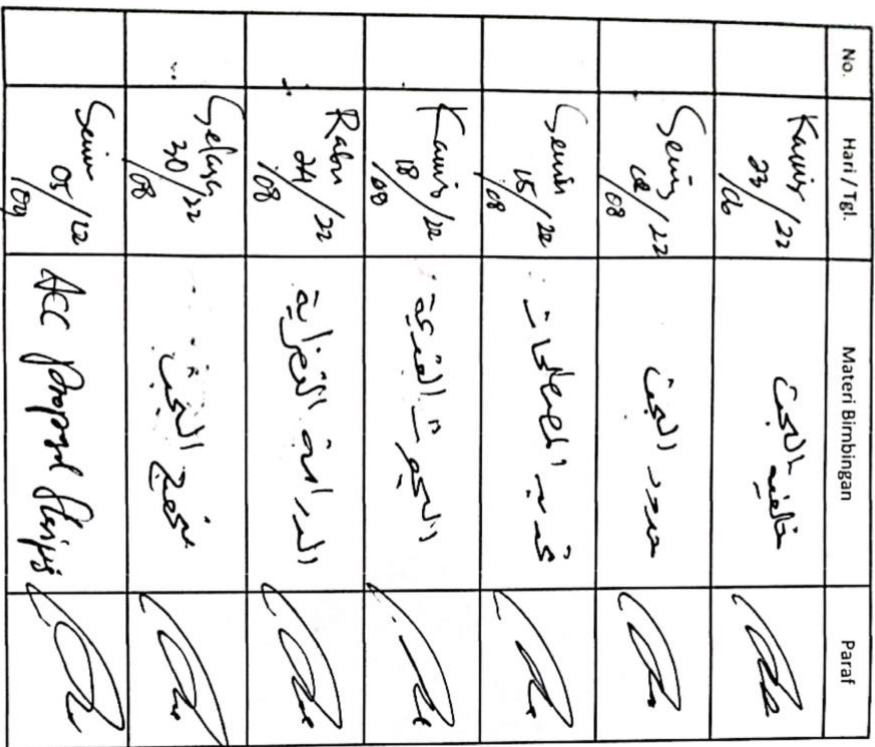 No. Hari / Tgl. Materi Bimbingan Paraf
Kamis 23/06/22 خلفية البحث
Senin 08/08/22 حدود البحث
Senin 15/08/22 تحديد المصطلحات
Kamis 18/08/22 البحوث الفرعية
Rabu 24/08/22 الدراسة النظرية
Selasa 30/08/22 منهج البحث
Senin 05/09/22 ACC proposal skripsi